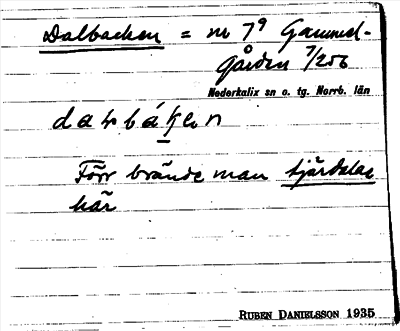 Dalbacken = nr 7⁹ Gammel-
gården 7/256
Nederkalix sn o. tg. Norrb. län
dalbáken
Förr brände man tjärdalar
här
RUBEN DANIELSSON 1935